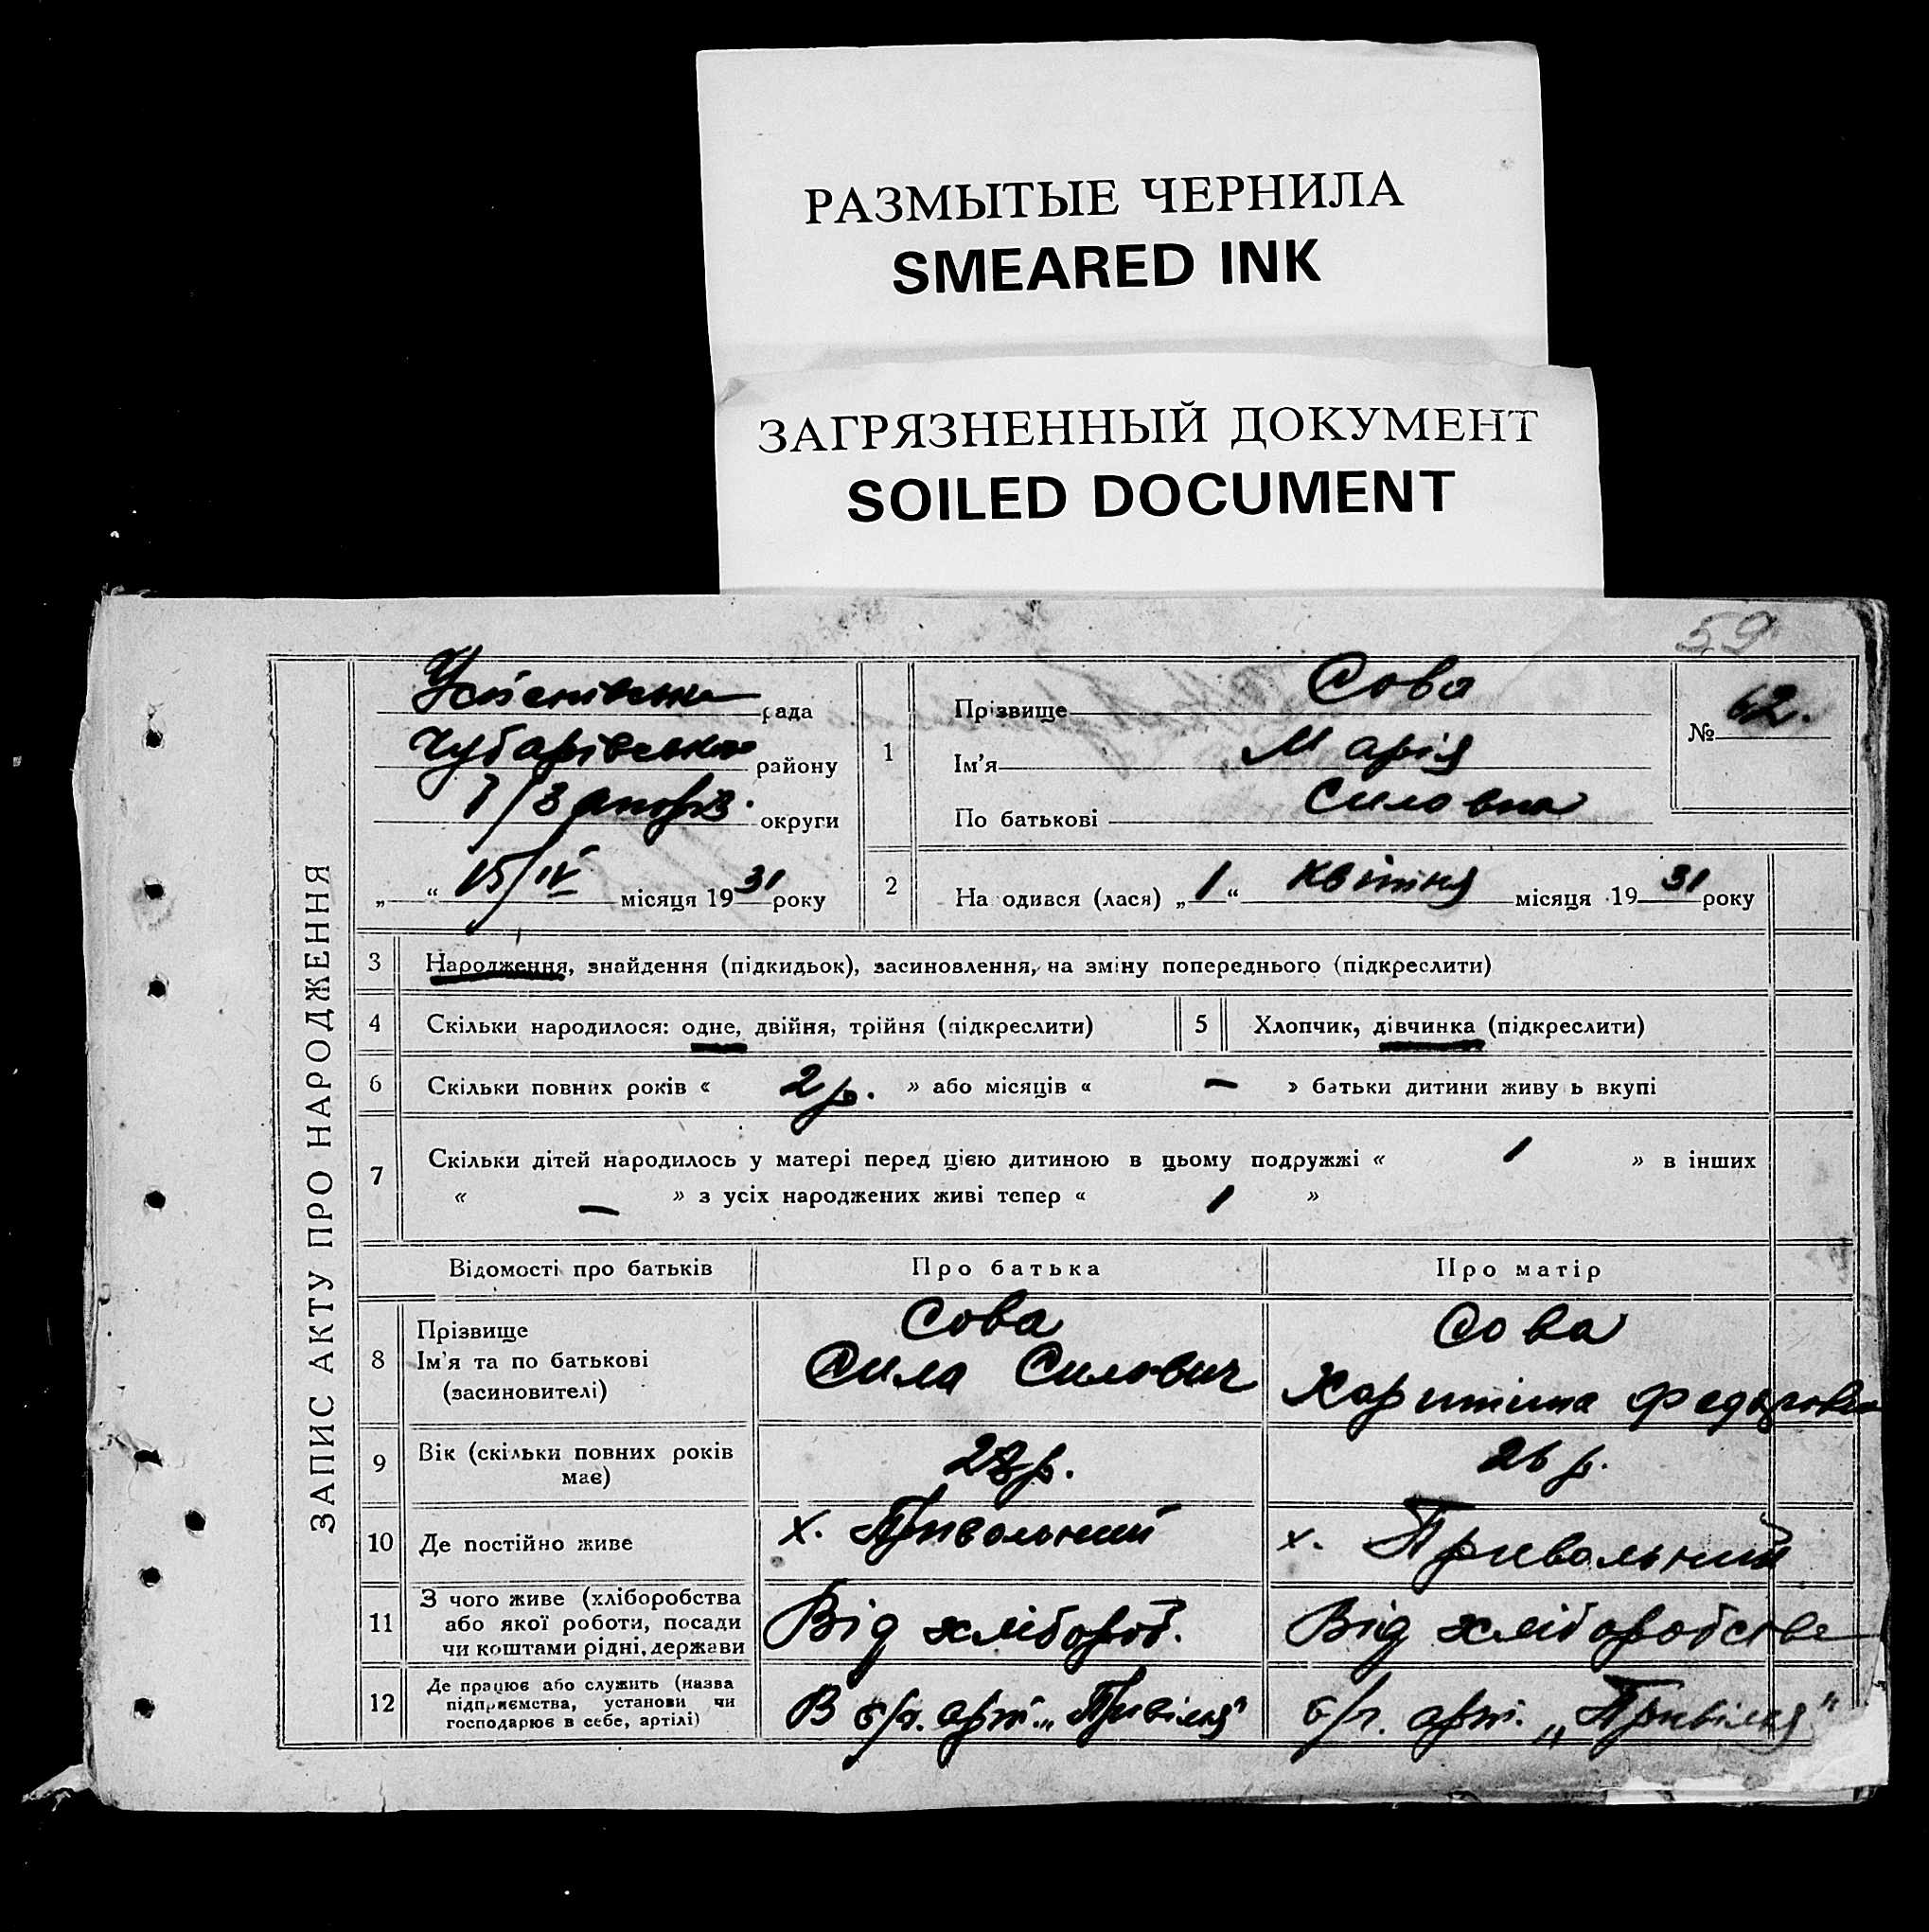 РАЗМЫТЫЕ ЧЕРНИЛА
SMEARED INK
ЗАГРЯЗНЕННЫЙ ДОКУМЕНТ
SOILED DOCUMENT
59
ЗАПИС АКТУ ПРО НАРОДЖЕННЯ
Успенівська рада
Чубарівського району
округи
„ “ 15/IV місяця 1931 року
1
Прізвище Сова
Ім'я Марія
По батькові Силовна
№ 62.
2 На одився (лася) „1“ квітня місяця 1931 року
3 Народження, знайдення (підкидьок), засиновлення, на зміну попереднього (підкреслити)
4 Скільки народилося: одне, двійня, трійня (підкреслити)
5 Хлопчик, дівчинка (підкреслити)
6 Скільки повних років « 2 р. » або місяців « — » батьки дитини живу ь вкупі
7 Скільки дітей народилось у матері перед цією дитиною в цьому подружжі « 1 » в інших
« — » з усіх народжених живі тепер « 1 »
Відомості про батьків Про батька Про матір
8 Прізвище
Ім'я та по батькові
(засиновителі)
Сова
Сила Силович
Сова
Харитина Федоровна
9 Вік (скільки повних років
має)
28 р.
26 р.
10 Де постійно живе
х. Привольний
х. Привольний
11 З чого живе (хліборобства
або якої роботи, посади
чи коштами рідні, держави
Від хлібороб.
Від хліборобства
12 Де працює або служить (назва
підприємства, установи чи
господарює в себе, артілі)
В с/г. арт. „Привілля"
с/г. арт. „Привілля"